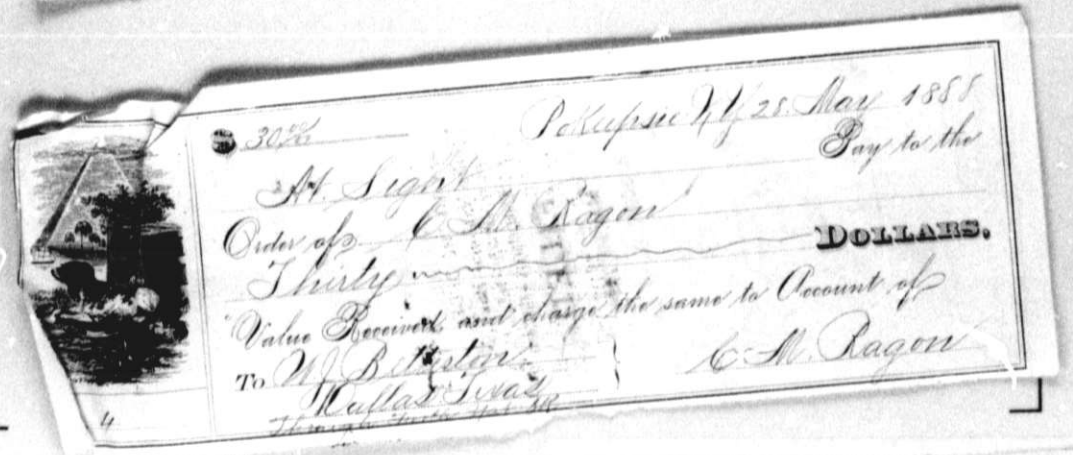 $ 30 00/100 Pokupsie N Y 28. May 1888
At Sight Pay to the
Order of C. M. Ragon
Thirty DOLLARS.
Value Received and charge the same to Account of
To W J Betterton C. M. Ragon
Dallas Texas
Through
4